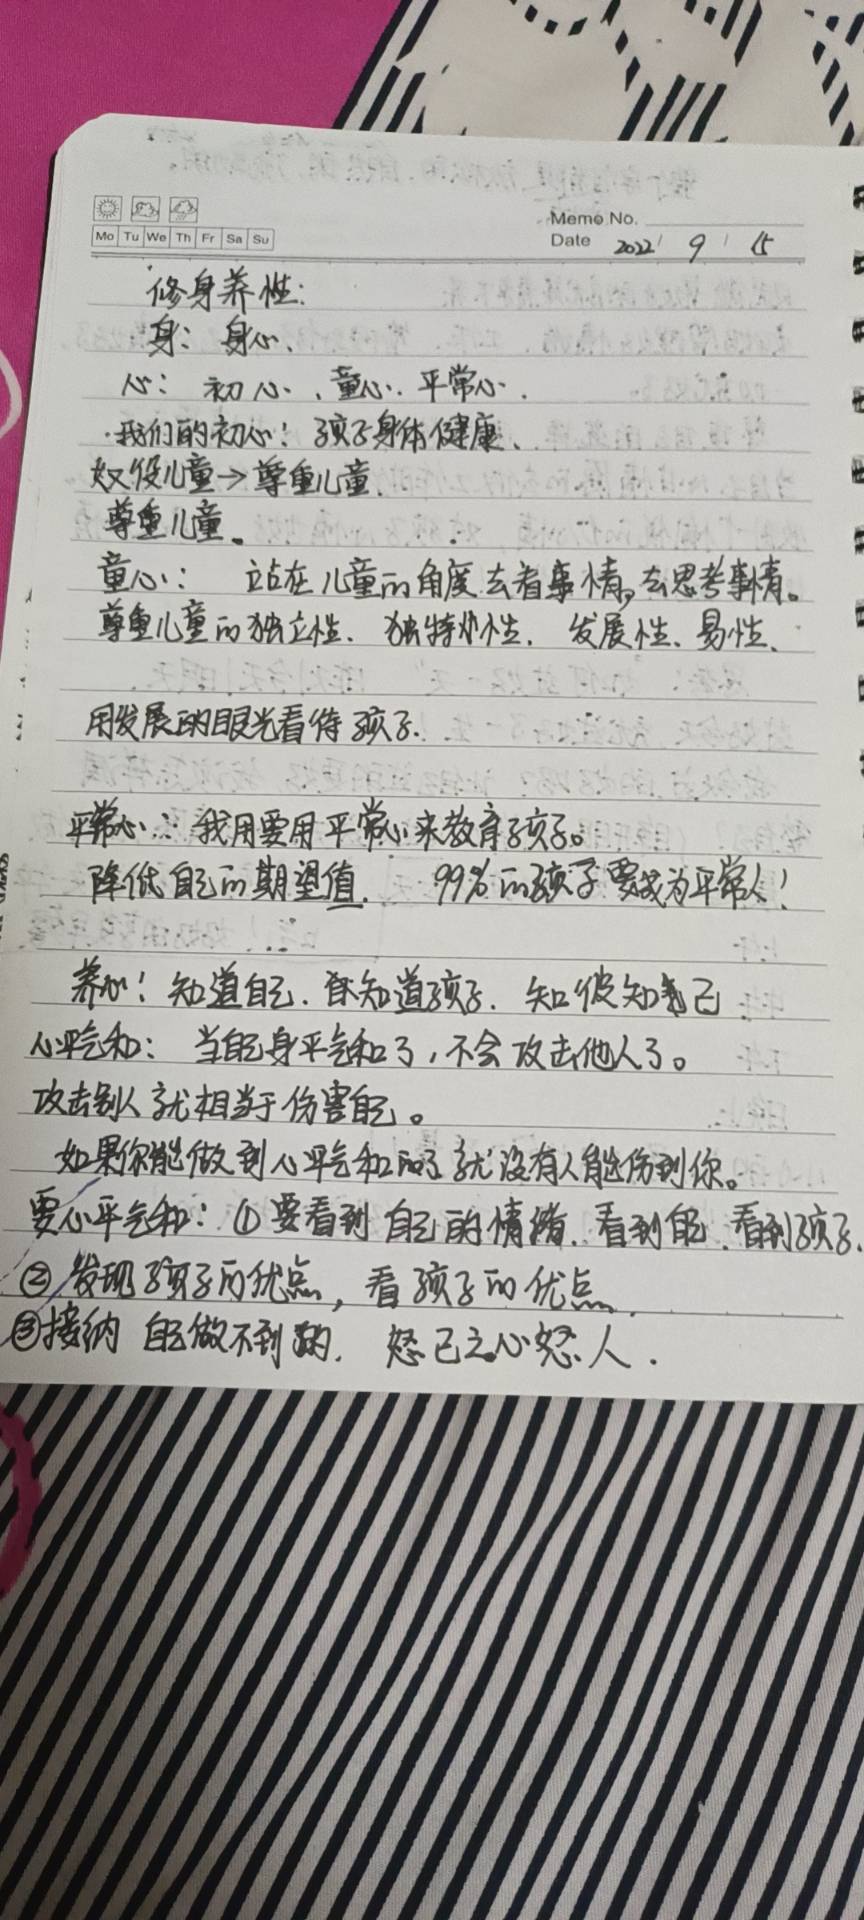 Mo Tu We Th Fr Sa Su
Memo No.
Date 2022 / 9 / 15
修身养性:
身: 身心、
心: 初心、童心、平常心.
·我们的初心: 孩子身体健康、
奴役儿童→尊重儿童.
尊重儿童。
童心: 站在儿童的角度去看事情,去思考事情。
尊重儿童的独立性、独特性、发展性、易性、
用发展的眼光看待孩子.
平常心: 我用要用平常心来教育孩子。
降低自己的期望值. 99%的孩子要成为平常人!
养心: 知道自己、知道孩子、知彼知己
心平气和: 当自己身平气和了,不会攻击他人了。
攻击别人就相当于伤害自己。
如果你能做到心平气和的了就没有人能伤到你。
要心平气和: ①要看到自己的情绪、看到自己、看到孩子、
②发现孩子的优点,看孩子的优点
③接纳自己做不到的. 怒己之心怒人.